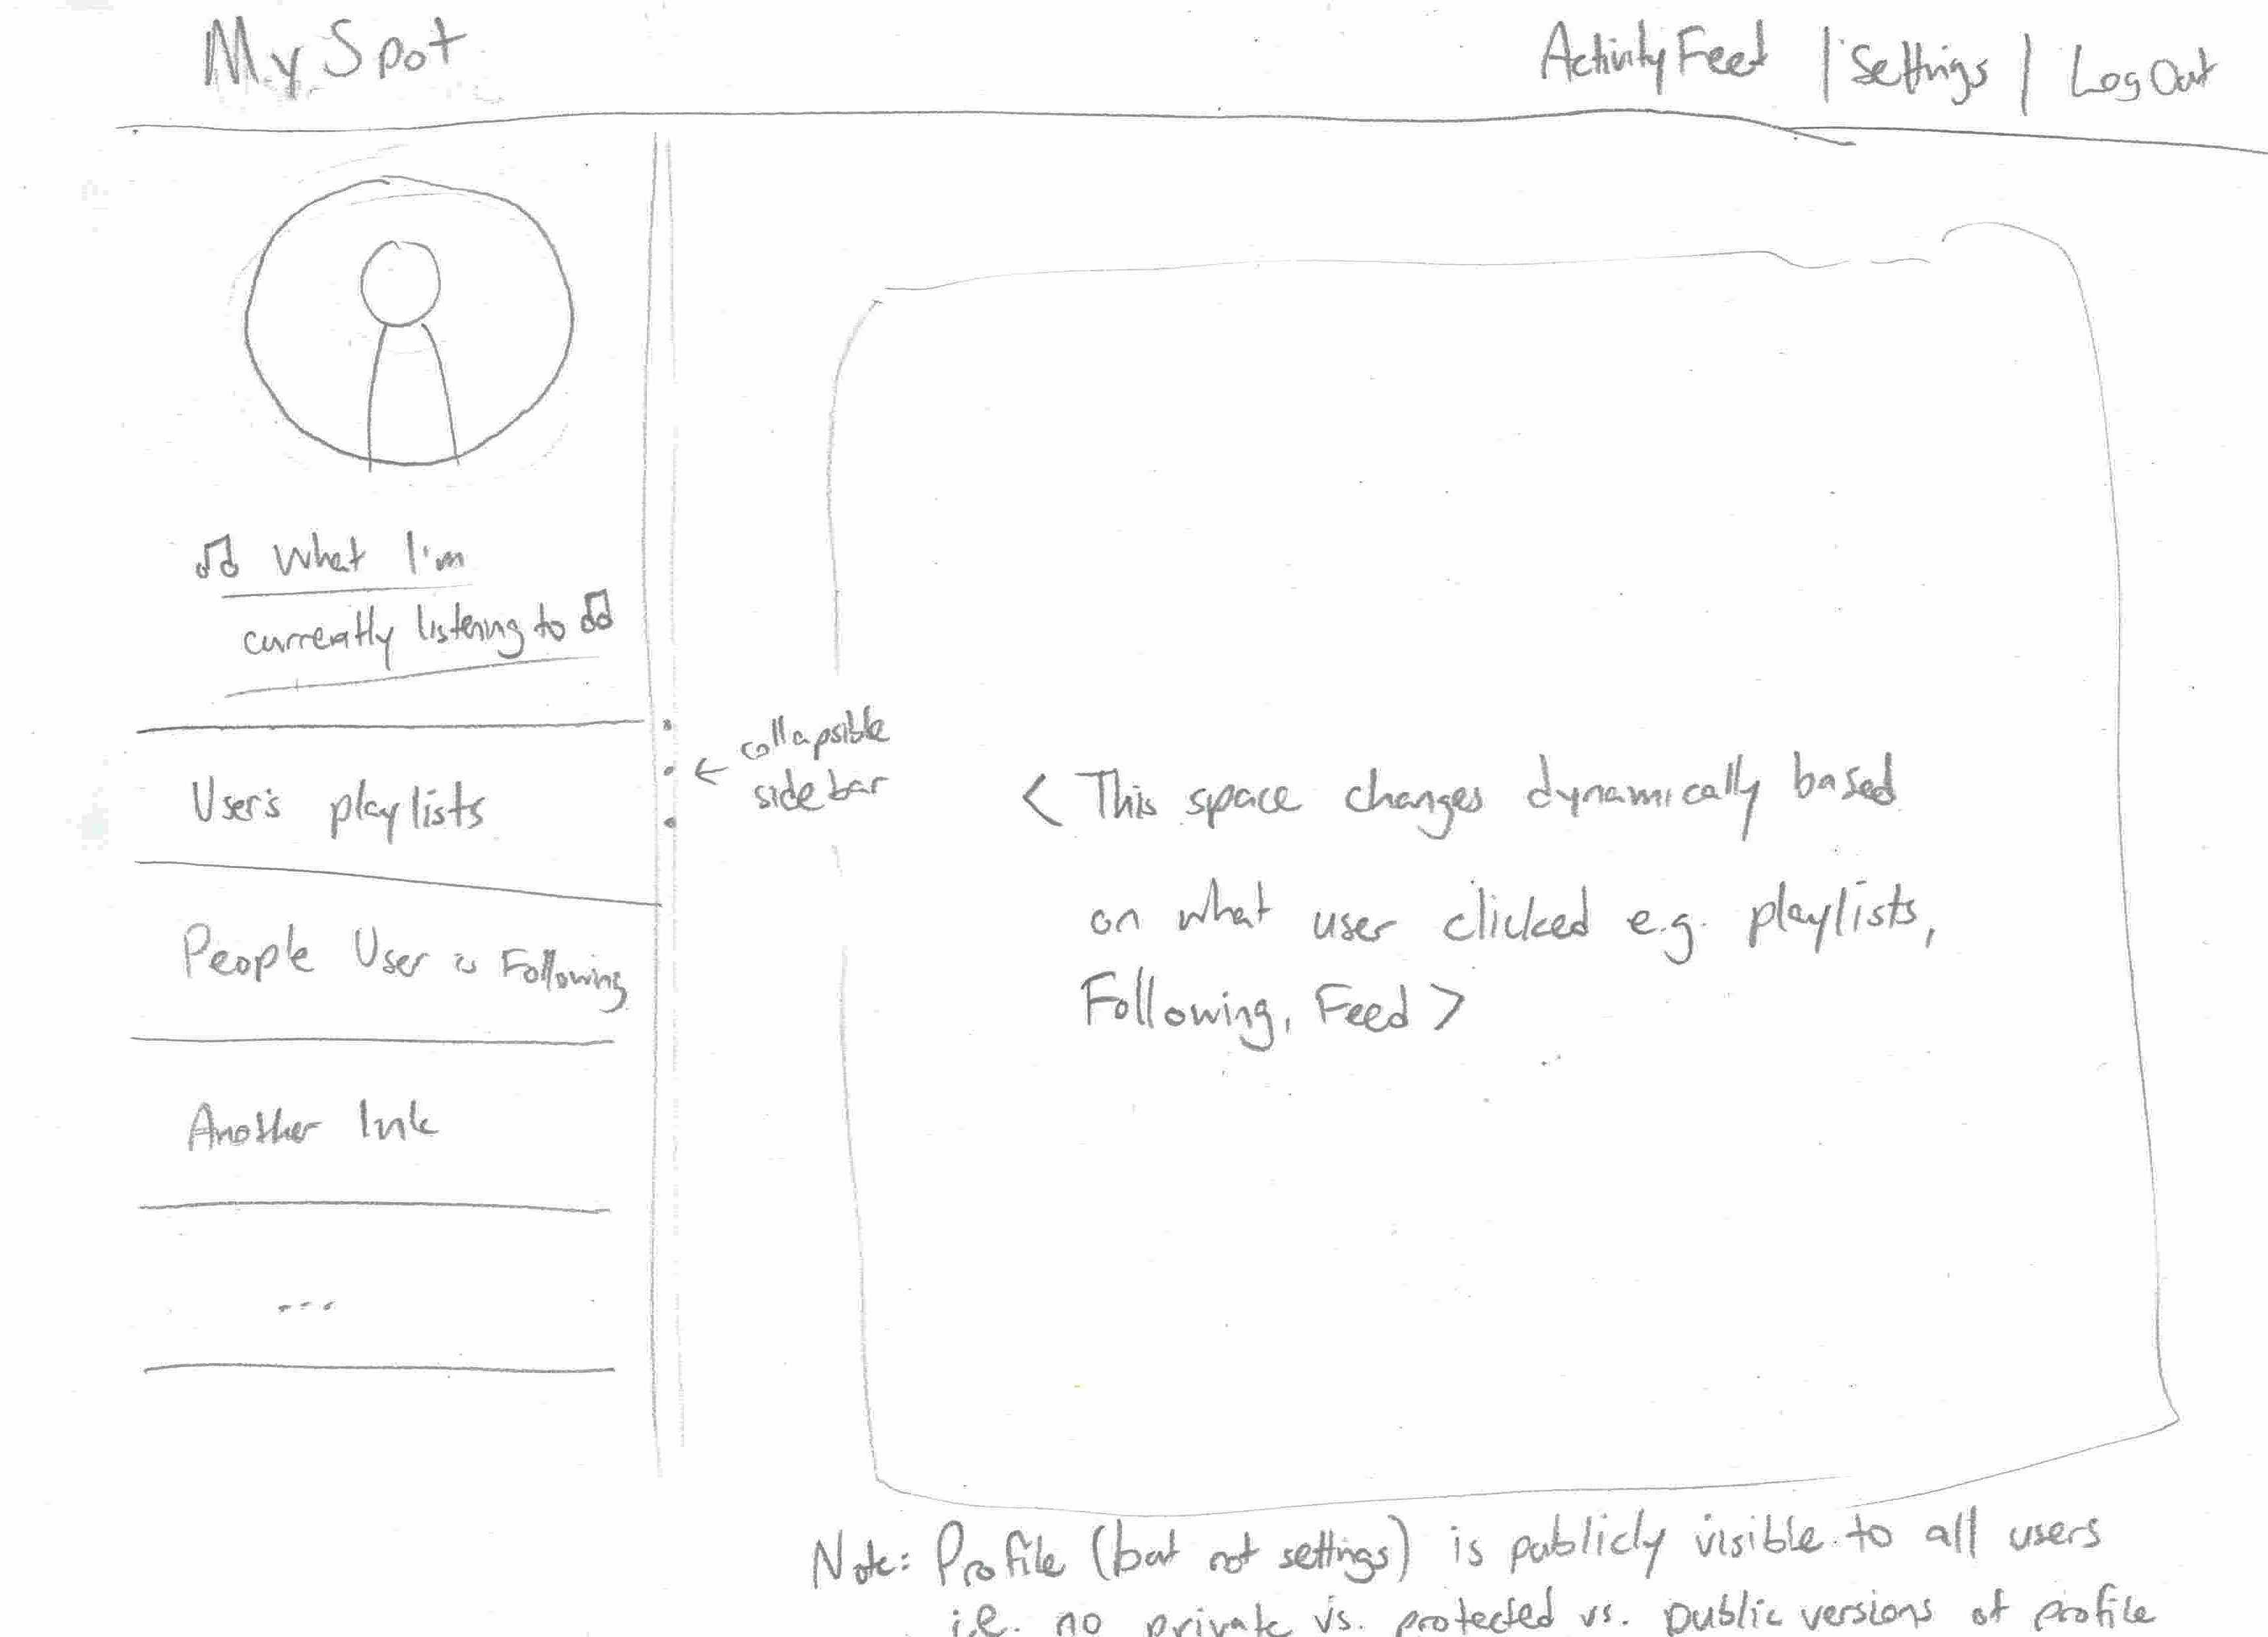 My Spot
Activity Feed | Settings | Log Out
What I'm
currently listening to
User's playlists
People User is Following
Another link
...
← collapsible
sidebar
< This space changes dynamically based
on what user clicked e.g. playlists,
Following, Feed >
Note: Profile (but not settings) is publicly visible to all users
i.e. no private vs. protected vs. public versions of profile